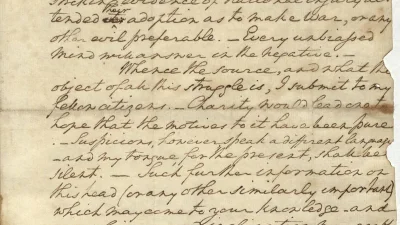 striking evidence of national injury at-
tended their adoption as to make War, or any
other evil preferable. – Every unbiassed
Mind will answer in the negative. –
Whence the source, and what the
object of all this struggle is, I submit to my
fellow citizens. – Charity would lead one to
hope that the motives to it have been pure.
– Suspicions, however, speak a different language
– and my tongue for the present, shall be
silent. – Such further information on
this head (or any other similarly important)
which may come to your knowledge – and